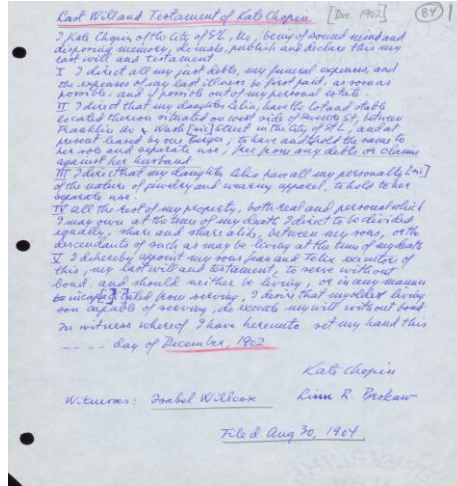 Last Will and Testament of Kate Chopin [Dec 1902] 84
I Kate Chopin of the City of St L, Mo, being of sound mind and
disposing memory, do make, publish and declare this my
last will and testament
I I direct all my just debts, my funeral expenses, and
the expenses of my last illness be first paid, as soon as
possible, and if possible out of my personal estate.
II I direct that my daughter Lelia, have the lot and stable
located thereon situated on west side of Seventh St, between
Franklin Av & Wash [sic] Street in the City of St L, and at
present leased by one ; to have and to hold the same to
her sole and separate use, free from any debts or claims
against her husband
III I direct that my daughter Lelia have all my personalty [sic]
of the nature of jewelry and wearing apparel, to hold to her
separate use.
IV All the rest of my property, both real and personal which
I may own at the time of my death I direct to be divided
equally, share and share alike, between my sons, or the
descendants of such as may be living at the time of my death
V I do hereby appoint my sons Jean and Felix executors of
this, my last will and testament, to serve without
bond. and should neither be living, or in any manner
be incapacitated from serving, I desire that my oldest living
son capable of serving, do execute my will without bond
In witness whereof I have hereunto set my hand this
---- day of December, 1902
Kate Chopin
Witnesses: Isabel Willcox Linn R. Brokaw
Filed Aug 30, 1904